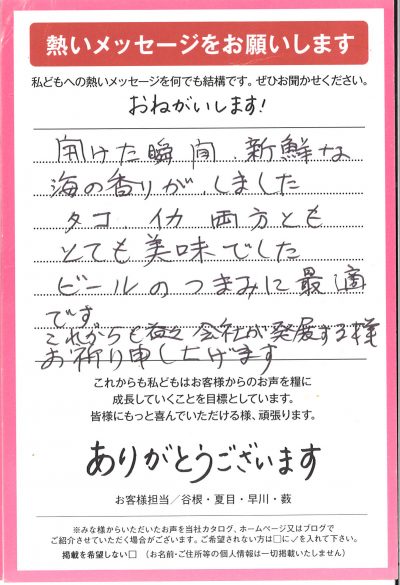 熱いメッセージをお願いします
私どもへの熱いメッセージを何でも結構です。ぜひお聞かせください。
おねがいします!
開けた瞬間、新鮮な
海の香りが、しました
タコ、イカ 両方とも
とても美味でした
ビールのつまみに最適
です
これからも益々会社が発展する様
お祈り申し上げます
これからも私どもはお客様からのお声を糧に
成長していくことを目標としています。
皆様にもっと喜んでいただける様、頑張ります。
ありがとうございます
お客様担当/谷根・夏目・早川・薮
※みな様からいただいたお声を当社カタログ、ホームページ又はブログで
ご紹介させていただく場合がございます。ご希望されない方は□に✓を入れて下さい。
掲載を希望しない□ (お名前・ご住所等の個人情報は一切掲載いたしません)